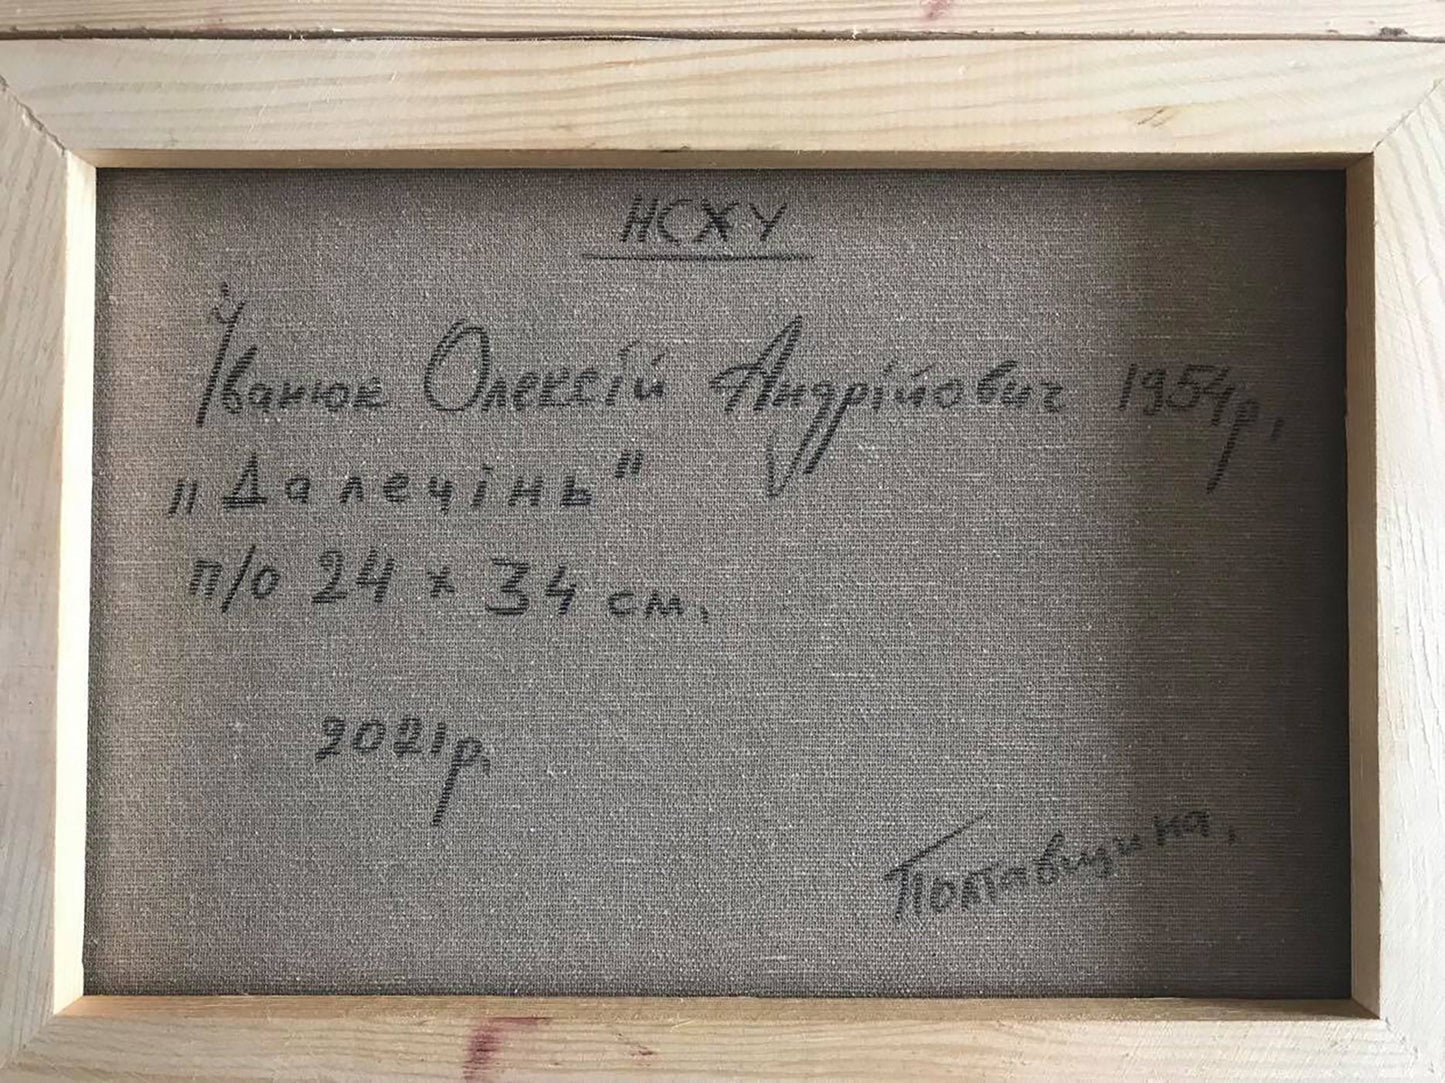 НСХУ
Іванюк Олексій Андрійович 1954р.
"Далечінь"
п/о 24 х 34 см.
2021р.
Полтавщина.